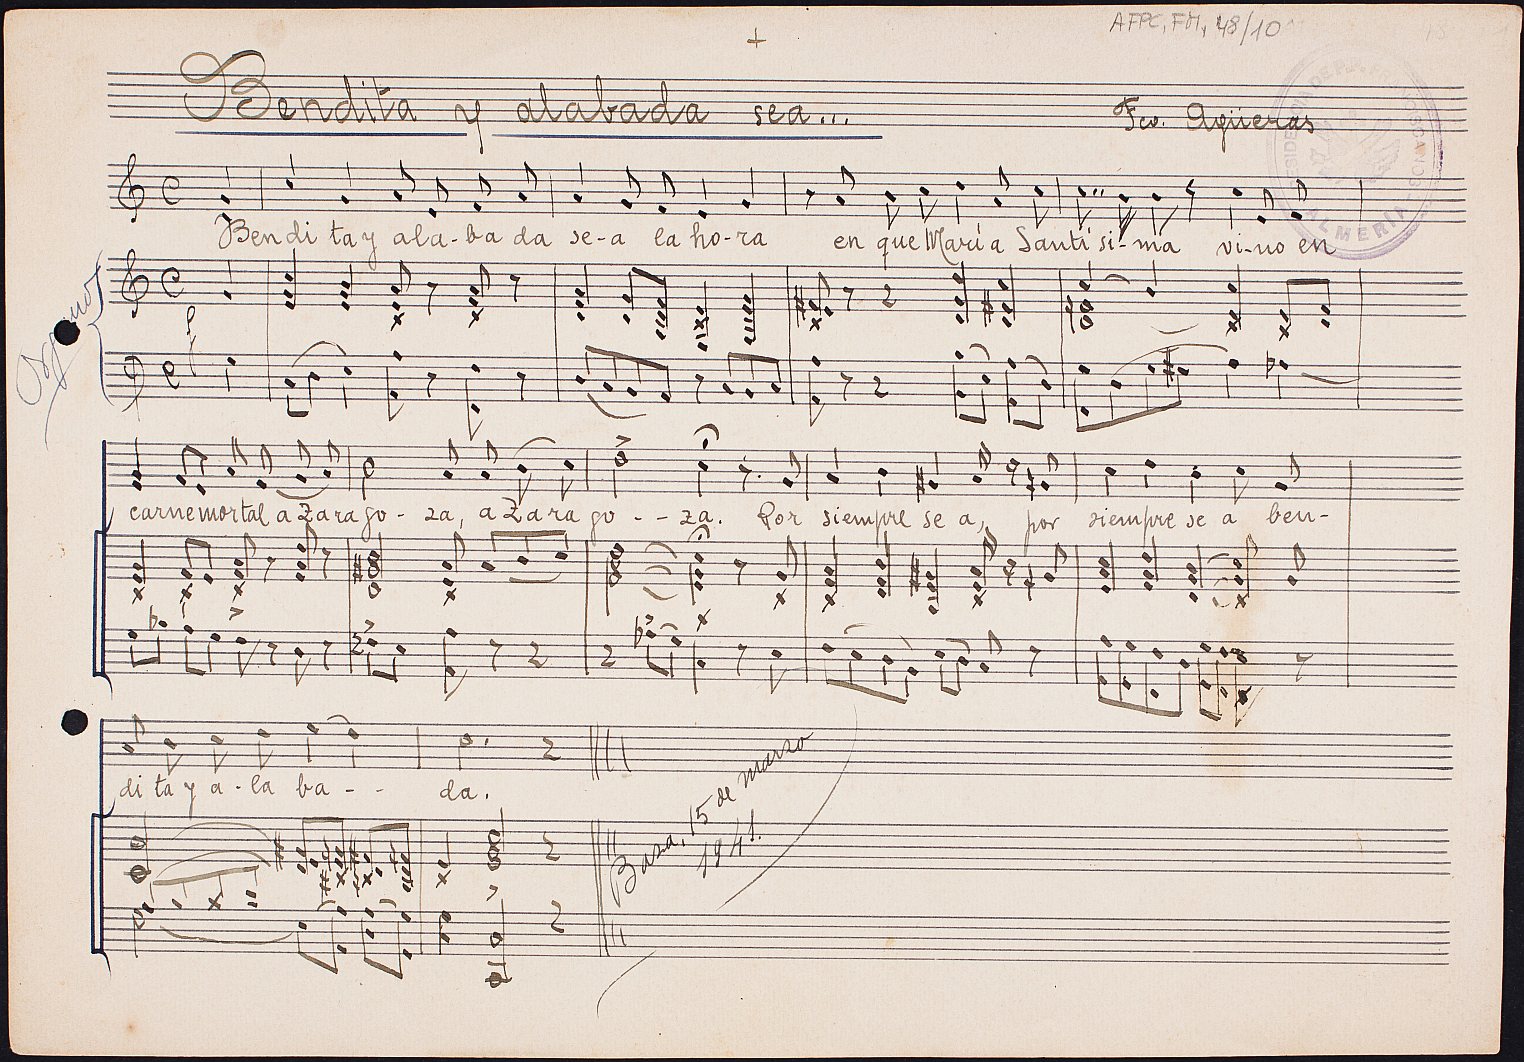 AFPC, FM, 48/10
Bendita y alabada sea...
Fco. Agüeras
Ben di ta y a la - ba da se - a la ho - ra en que María Santí si - ma vi - no en
Organo
carne mortal a Zara go - za, a Za ra go - - za. Por siempre se a, por siempre se a ben -
di ta y a - la ba - - da.
Basa, 15 de marzo
1941.
ALMERÍA